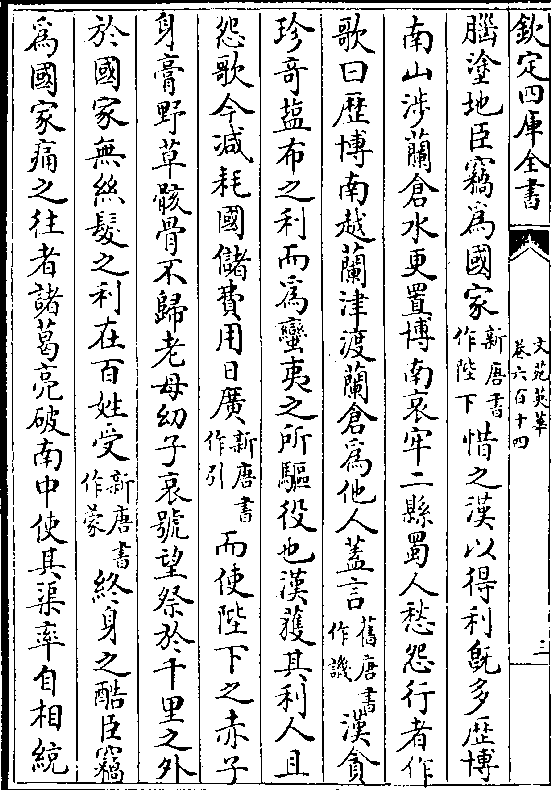 欽定四庫全書
文苑英華
卷六百十四
三
腦塗地臣竊爲國家新唐書作陛下惜之漢以得利旣多歴博
南山涉蘭倉水更置博南哀牢二縣蜀人愁怨行者作
歌曰歴博南越蘭津渡蘭倉爲他人蓋言舊唐書作譏漢貪
珍奇藍布之利而爲蠻夷之所驅役也漢獲其利人且
怨歌今減耗國儲費用日廣新唐書作引而使陛下之赤子
身膏野草骸骨不歸老母幼子哀號望祭於千里之外
於國家無絲髮之利在百姓受新唐書作蒙終身之酷臣竊
爲國家痛之往者諸葛亮破南中使其渠率自相統